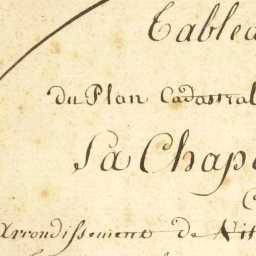 Tablea
du Plan Cadastral
La Chap
Arrondissement de Vit